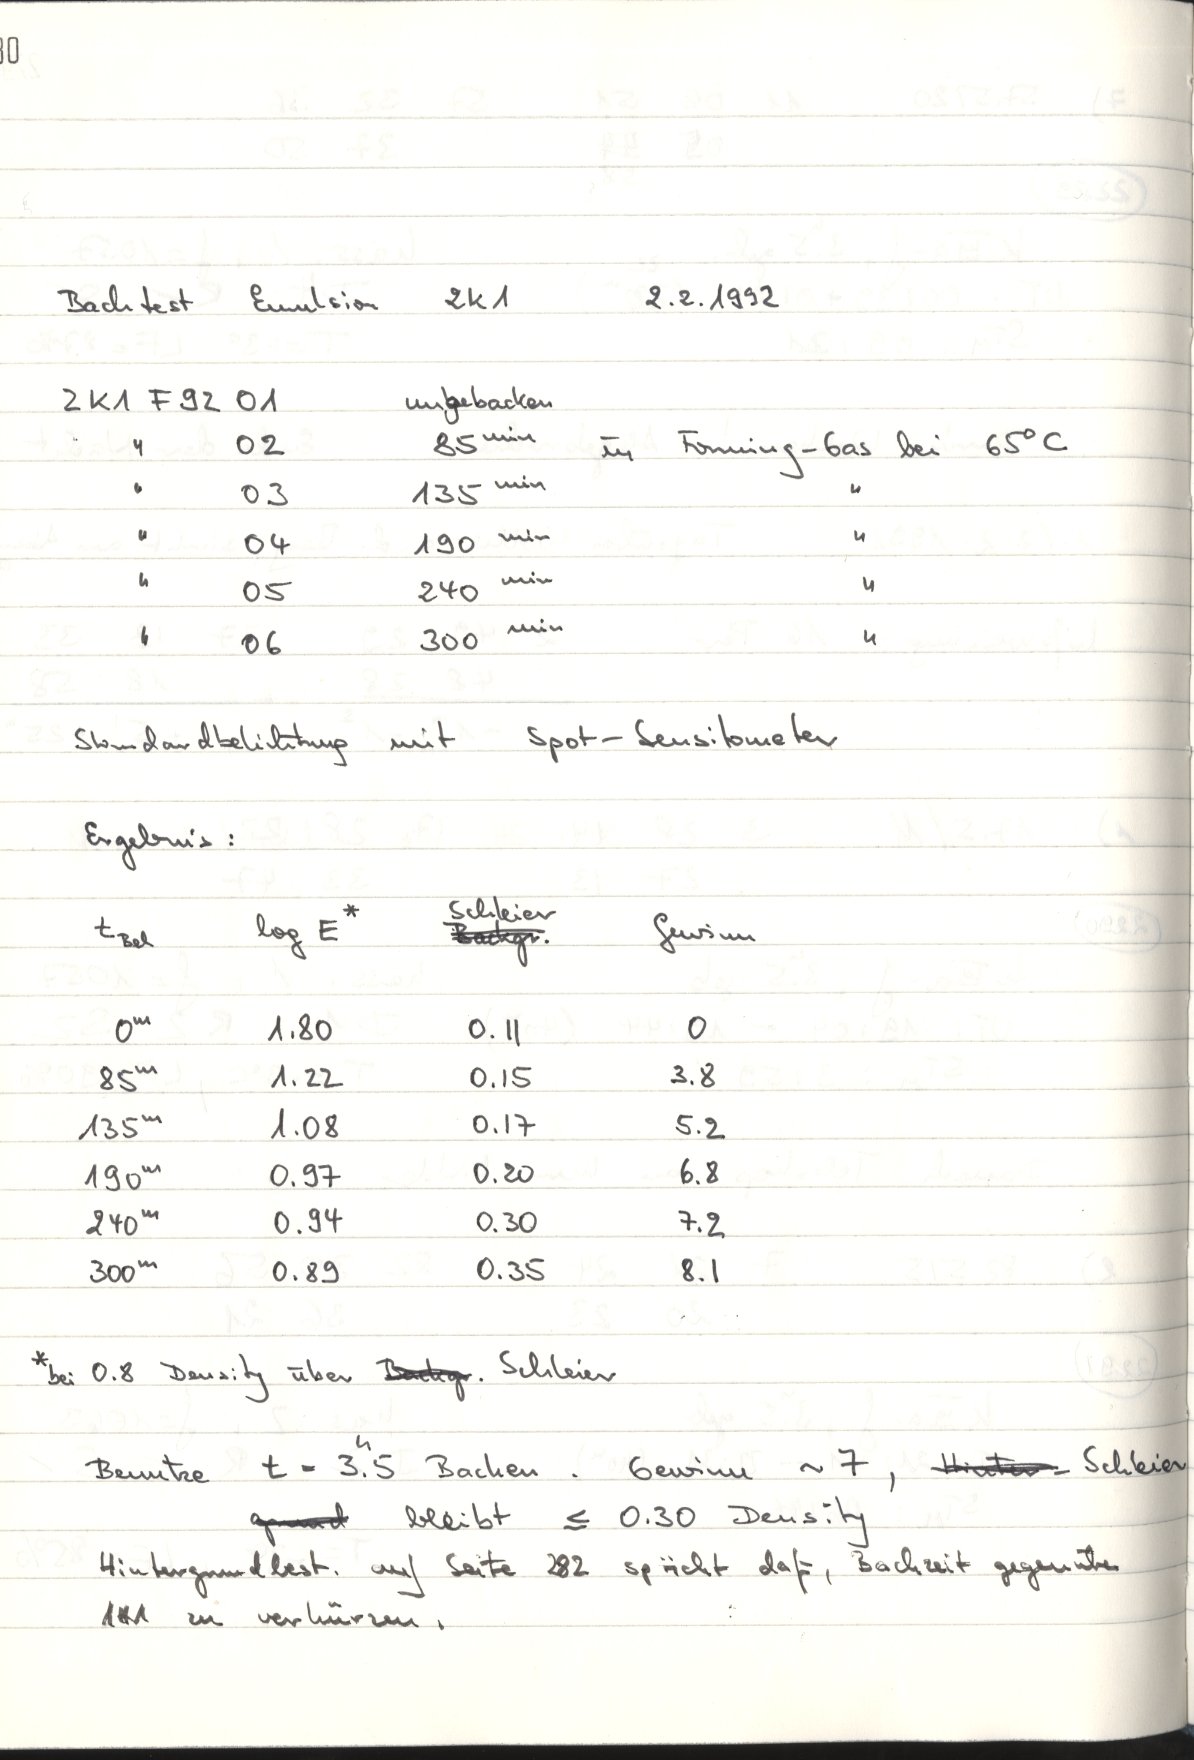 80
Backtest Emulsion 2K1 2.2.1992
2K1 F92 01 ungebacken
" 02 85 min in Forming-Gas bei 65°C
" 03 135 min "
" 04 190 min "
" 05 240 min "
" 06 300 min "
Standardbelichtung mit Spot-Sensitometer
Ergebnis:
Schleier
t Bel log E* Backgr. Gewinn
0m 1.80 0.11 0
85m 1.22 0.15 3.8
135m 1.08 0.17 5.2
190m 0.97 0.20 6.8
240m 0.94 0.30 7.2
300m 0.89 0.35 8.1
*bei 0.8 Density über Backgr. Schleier
Benutze t = 3h.5 Backen. Gewinn ~ 7, Hinter- Schleier
grund bleibt ≤ 0.30 Density
Hintergrundbest. auf Seite 282 spricht daf, Backzeit gegenüber
1K1 zu verkürzen.